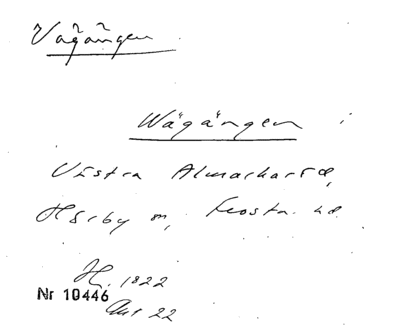 Vägängen
Wägängen i
Västra Almarkaröd,
Hörby sn, Frosta hd
H. 1822
Nr 10446
Akt 22